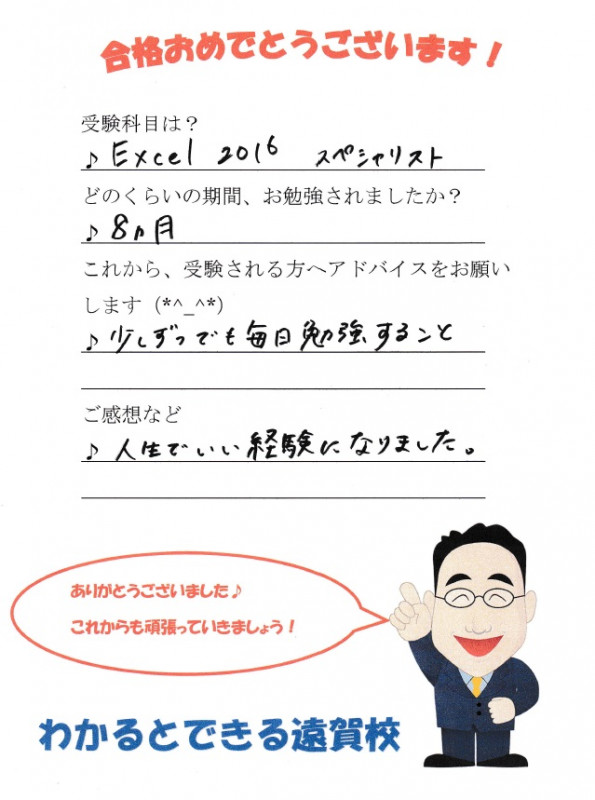 合格おめでとうございます！
受験科目は？
♪ Excel 2016 スペシャリスト
どのくらいの期間、お勉強されましたか？
♪ 8ヵ月
これから、受験される方へアドバイスをお願い
します (*^_^*)
♪ 少しずつでも毎日勉強すること
ご感想など
♪ 人生でいい経験になりました。
ありがとうございました♪
これからも頑張っていきましょう！
わかるとできる遠賀校